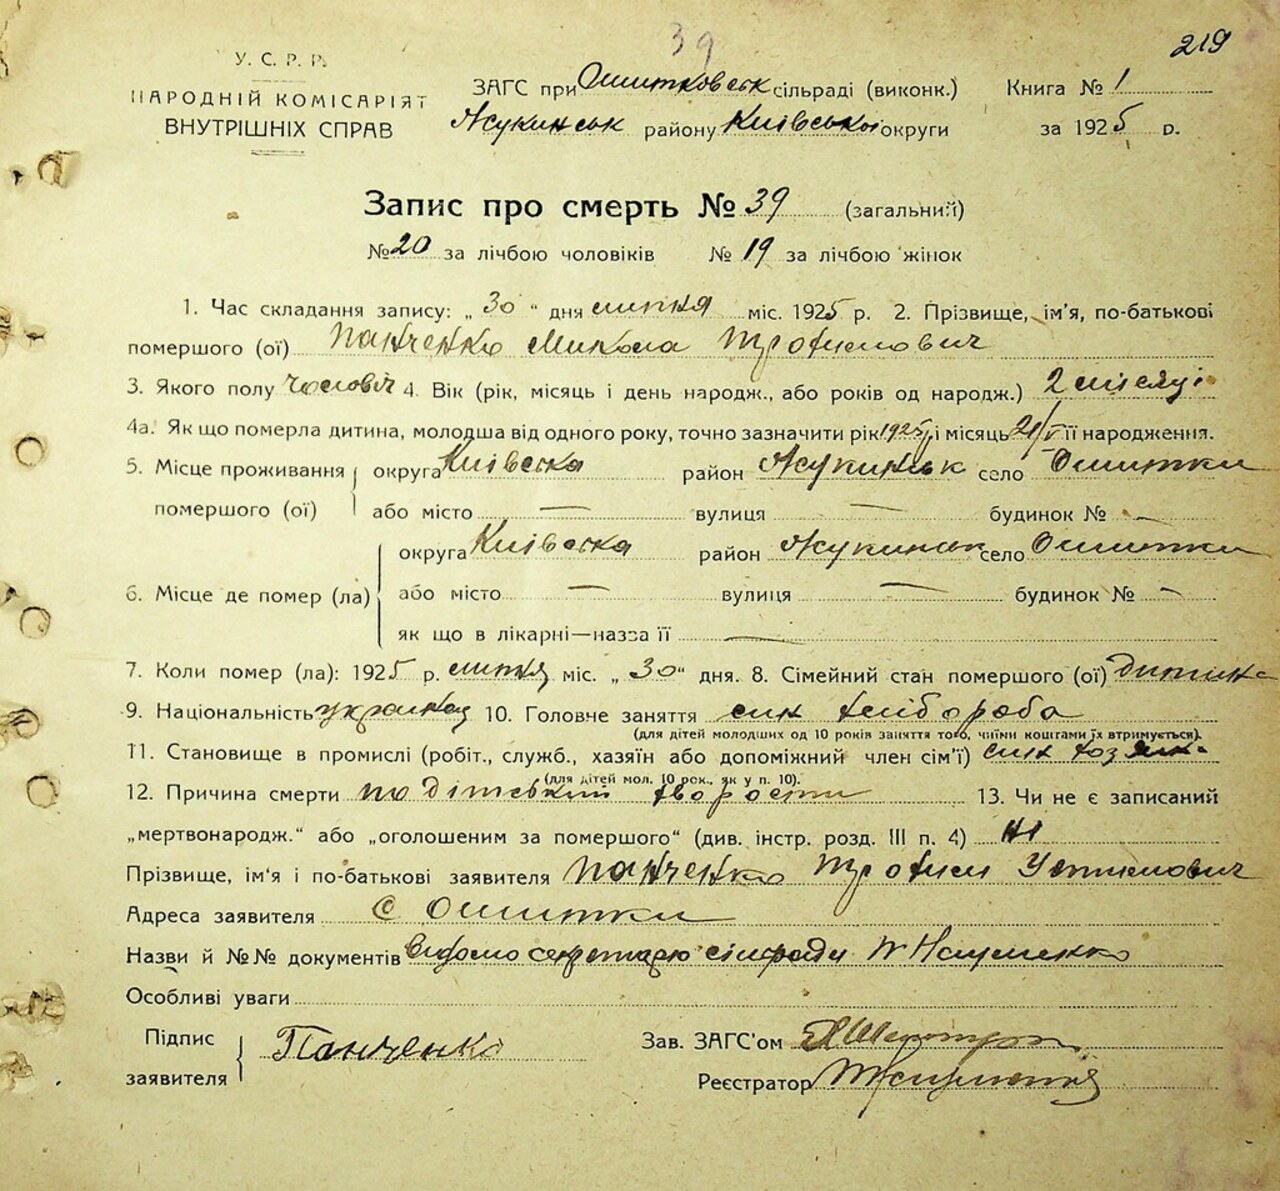 39
219
У. С. Р. Р.
НАРОДНІЙ КОМІСАРІЯТ
ВНУТРІШНІХ СПРАВ
ЗАГС при Ошитковськ сільраді (виконк.)
Жукинськ району Київської округи
Книга № 1
за 1925 р.
Запис про смерть № 39 (загальний)
№ 20 за лічбою чоловіків № 19 за лічбою жінок
1. Час складання запису: „ 30 “ дня липня міс. 1925 р. 2. Прізвище, ім'я, по-батькові
помершого (ої) Панченко Микола Трохимович
3. Якого полу чоловіч 4. Вік (рік, місяць і день народж., або років од народж.) 2 місяці
4а. Як що померла дитина, молодша від одного року, точно зазначити рік 1925 і місяць 21/V її народження.
5. Місце проживання округа Київська район Жукинськ село Ошитки
помершого (ої) або місто — вулиця — будинок № —
округа Київська район Жукинськ село Ошитки
6. Місце де помер (ла) або місто — вулиця — будинок № —
як що в лікарні—назва її —
7. Коли помер (ла): 1925 р. липня міс. „ 30 “ дня. 8. Сімейний стан помершого (ої) дитина
9. Національність 10. Головне заняття син хлібороба
(для дітей молодших од 10 років заняття того, чиїми коштами їх втримується).
11. Становище в промислі (робіт., служб., хазяїн або допоміжний член сім'ї) син
(для дітей мол. 10 рок., як у п. 10).
12. Причина смерти по дітський хворости 13. Чи не є записаний
„мертвонародж.“ або „оголошеним за помершого“ (див. інстр. розд. III п. 4) ні
Прізвище, ім'я і по-батькові заявителя Панченко Трохим Устимович
Адреса заявителя с Ошитки
Назви й №№ документів Відомо секретарю сільради Науменко
Особливі уваги
Підпис
заявителя
Панченко
Зав. ЗАГС'ом
Реєстратор